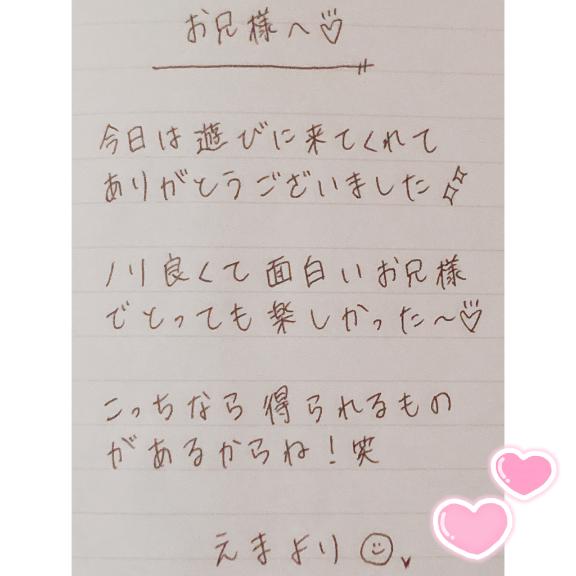 お兄様へ♡
今日は遊びに来てくれて
ありがとうございました✨
ノリ良くて面白いお兄様
でとっても楽しかった〜♡
こっちなら得られるもの
があるからね！笑
えまより☺♥